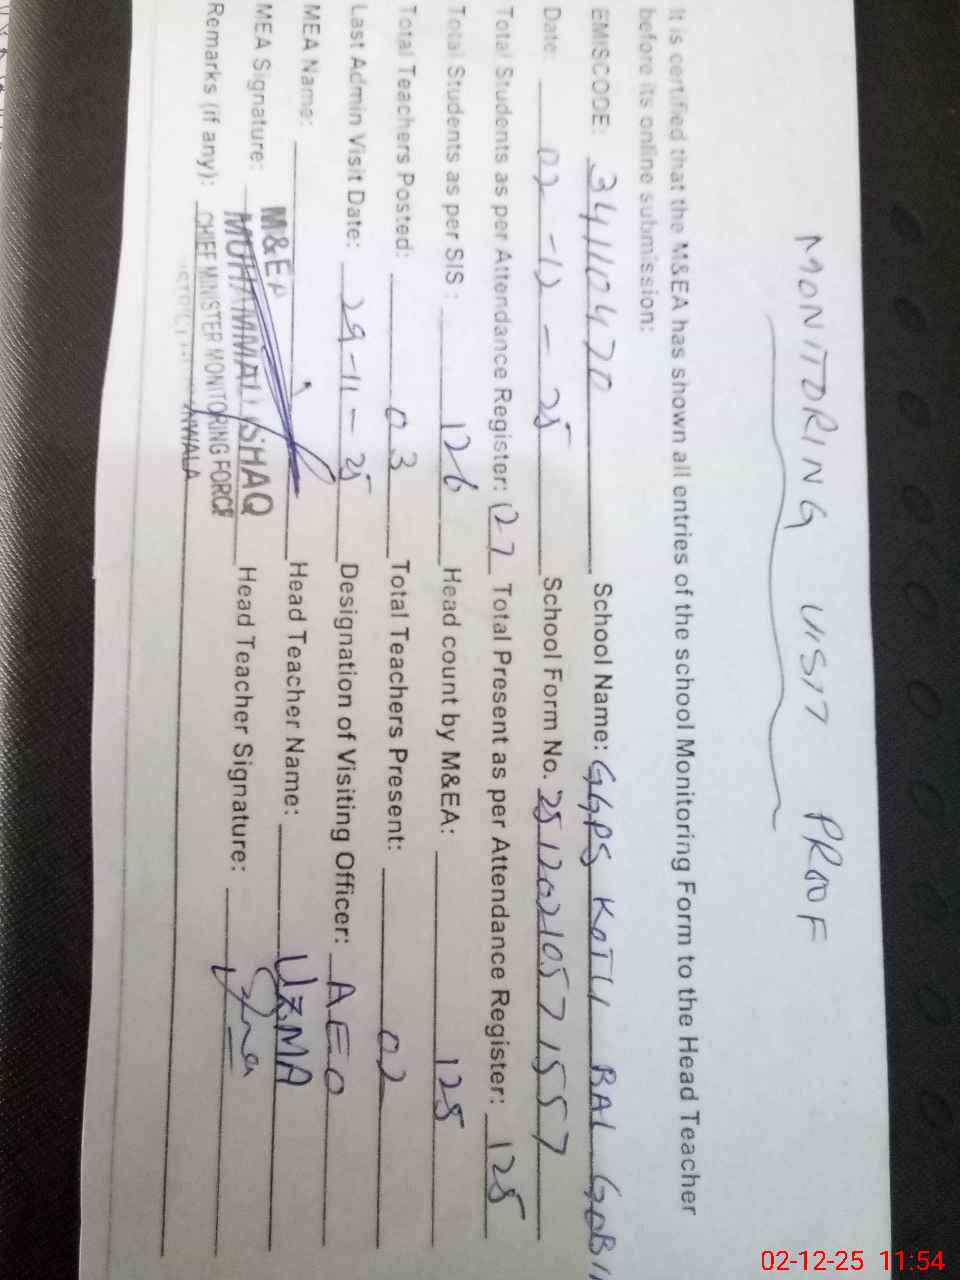 MONITORING VISIT PROOF
It is certified that the M&EA has shown all entries of the school Monitoring Form to the Head Teacher
before its online submission:
EMISCODE: 34110470 School Name: GGPS KOTLI BAI GOBI
Date: 02-12-25 School Form No. 2512021057 1557
Total Students as per Attendance Register: 127 Total Present as per Attendance Register: 125
Total Students as per SIS : 126 Head count by M&EA: 125
Total Teachers Posted: 03 Total Teachers Present: 02
Last Admin Visit Date: 29-11-25 Designation of Visiting Officer: AEO
MEA Name: Head Teacher Name: UZMA
M&EA
MEA Signature: MUHAMMAD ISHAQ Head Teacher Signature:
Remarks (if any): CHIEF MINISTER MONITORING FORCE
02-12-25 11:54